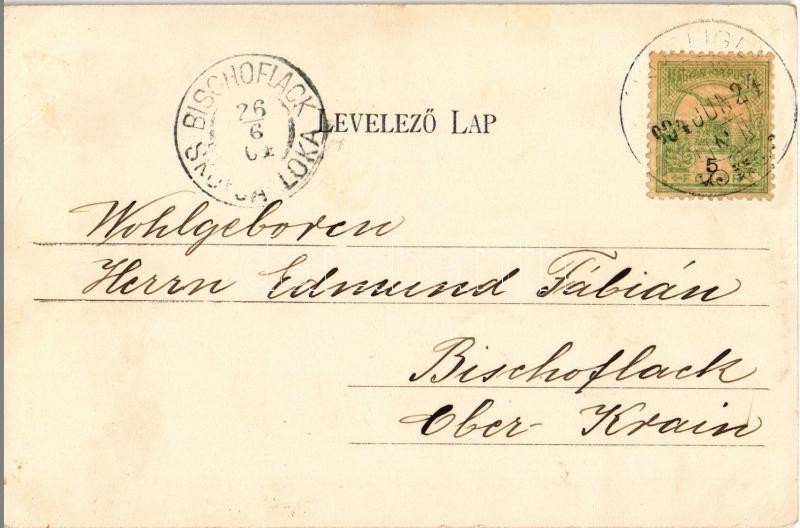 BISCHOFLACK
26
6
LOKA
LEVELEZŐ LAP
MAGYAR KIR. POSTA
904 JUN 24
5
Wohlgeboren
Herrn Edmund Fábián
Bischoflack
Ober-Krain